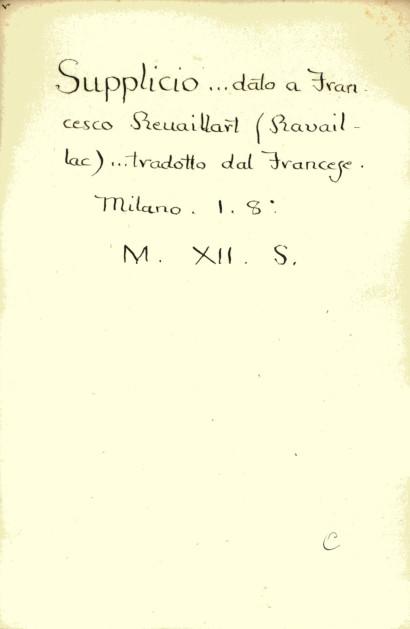 Supplicio ... dato a Fran-
cesco Revaillart (Ravail-
lac) ... tradotto dal Francese.
Milano. 1. 8°.
M. XII. S.
C